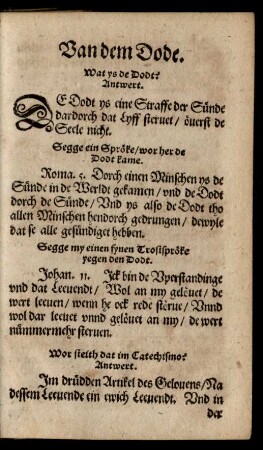 Van dem Dode.
Wat ys de Dodt?
Antwert.
DE Dodt ys eine Straffe der Sünde
dardorch dat Lyff steruet / öuerst de
Seele nicht.
Segge ein Spröke / wor her de
Dodt kame.
Roma. 5. Dorch einen Minschen ys de
Sünde in de Werldt gekamen / vnd de Dodt
dorch de Sünde / Vnd ys also de Dodt tho
allen Minschen hendorch gedrungen / dewyle
dat se alle gesündiget hebben.
Segge my einen fynen Trostspröke
yegen den Dodt.
Johan. 11. Jck bin de Vperstandinge
vnd dat Leeuendt / Wol an my gelöuet / de
wert leeuen / wenn he ock rede störue / Vnnd
wol dar leeuet vnnd gelöuet an my / de wert
nümmermehr steruen.
Wor steith dat im Catechismo?
Antwert.
Jm drüdden Artikel des Gelouens / Na
dessem Leeuende ein ewich Leeuendt. Vnd in
der